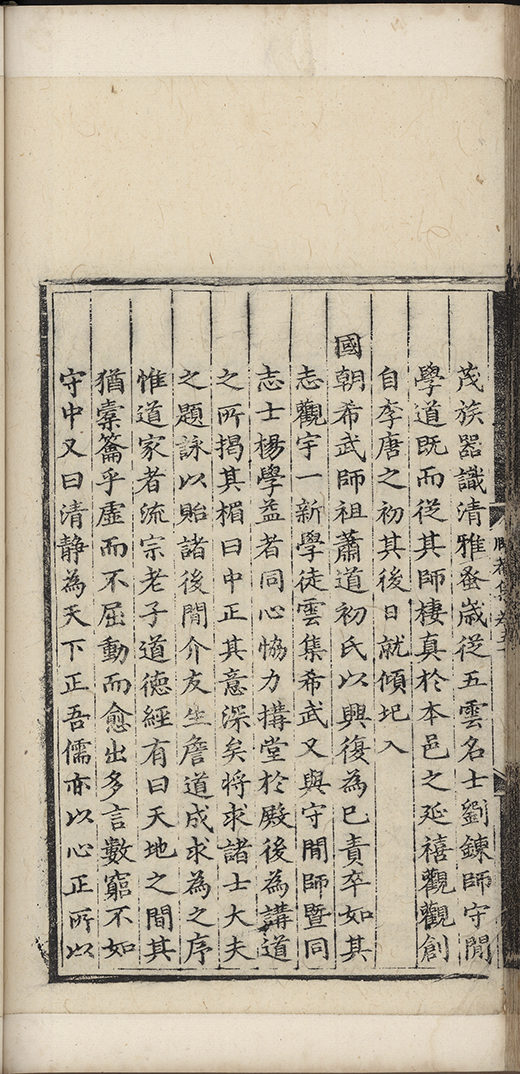 茂族器識清雅蚤歳從五雲名士劉鍊師守閒
學道既而從其師棲真於本邑之延禧觀觀創
自李唐之初其後日就傾圯入
國朝希武師祖蕭道初氏以興復為已責卒如其
志觀宇一新學徒雲集希武又與守閒師暨同
志士楊學益者同心恊力搆堂於殿後為講道
之所揭其楣曰中正其意深矣将求諸士大夫
之題詠以貽諸後閒介友生詹道成求為之序
惟道家者流宗老子道德經有曰天地之間其
猶橐籥乎虛而不屈動而愈出多言數窮不如
守中又曰清静為天下正吾儒亦以心正所以